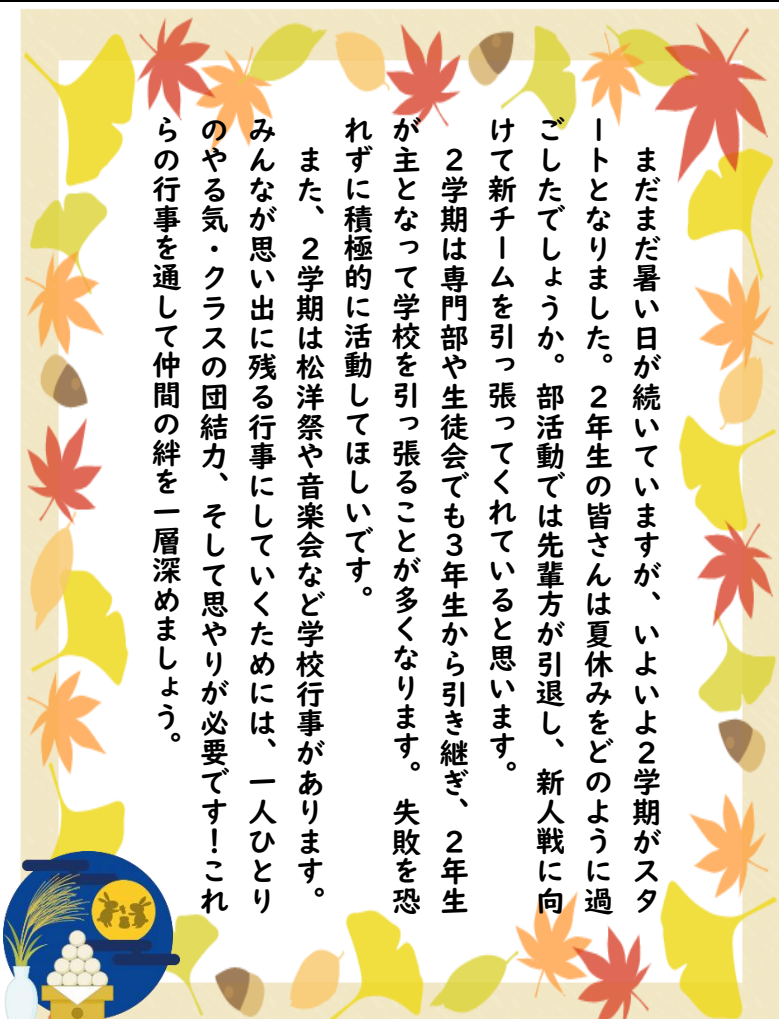 まだまだ暑い日が続いていますが、いよいよ２学期がスタ
ートとなりました。２年生の皆さんは夏休みをどのように過
ごしたでしょうか。部活動では先輩方が引退し、新人戦に向
けて新チームを引っ張ってくれていると思います。
２学期は専門部や生徒会でも３年生から引き継ぎ、２年生
が主となって学校を引っ張ることが多くなります。失敗を恐
れずに積極的に活動してほしいです。
また、２学期は松洋祭や音楽会など学校行事があります。
みんなが思い出に残る行事にしていくためには、一人ひとり
のやる気・クラスの団結力、そして思やりが必要です！これ
らの行事を通して仲間の絆を一層深めましょう。